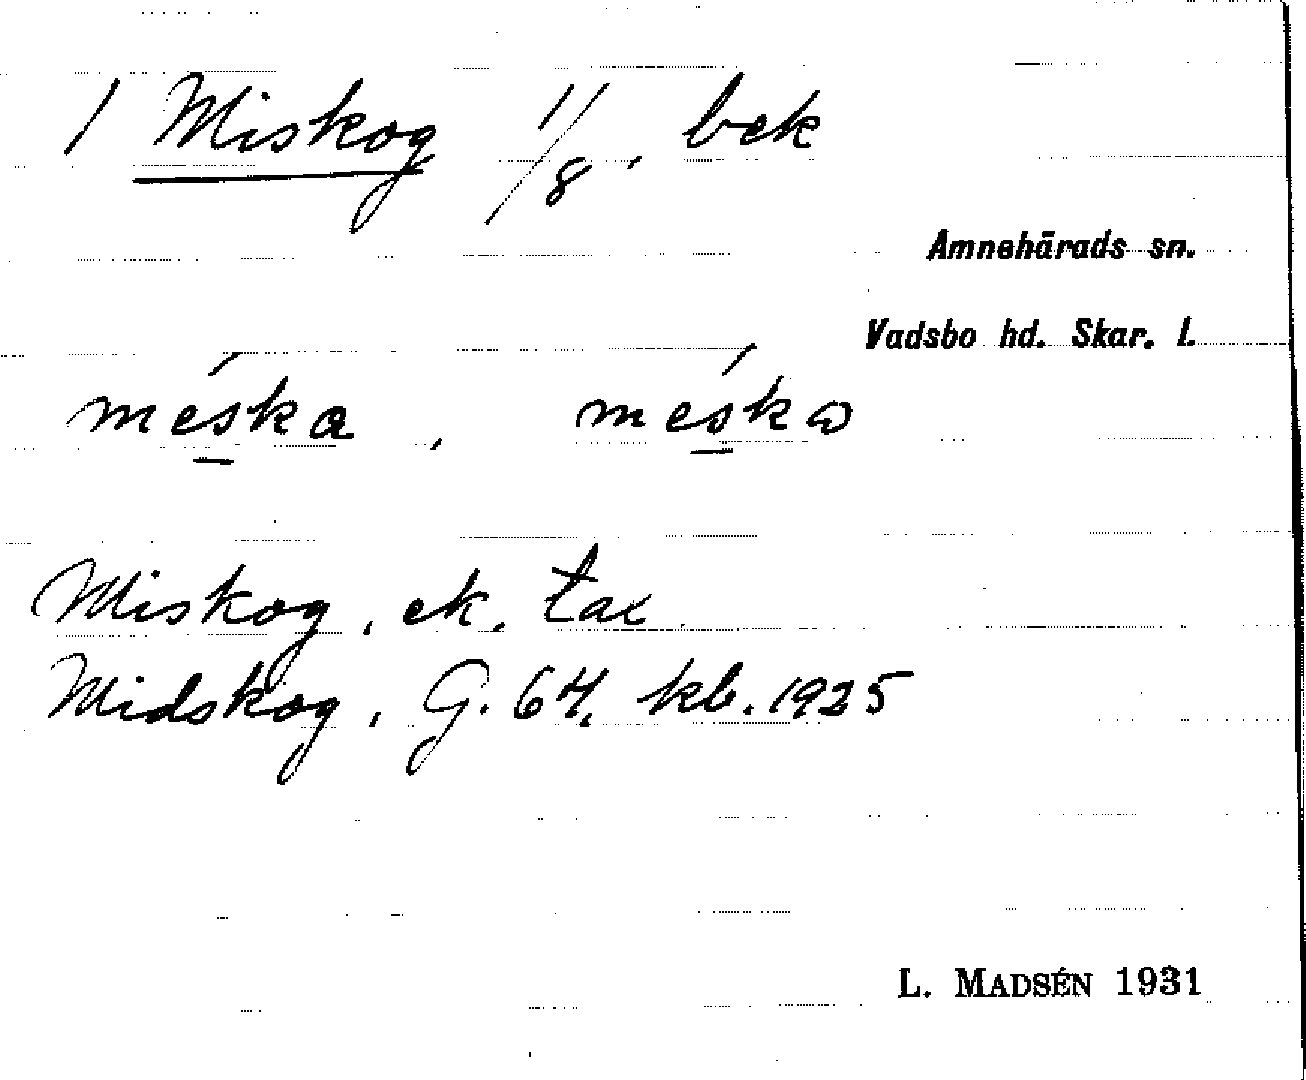 1 Miskog 1/8, bek
Amnehärads sn.
Vadsbo hd. Skar. l.
méska, méskω
Miskog, ek. tax
Midskog, G. 64, kb. 1925
L. MADSÉN 1931